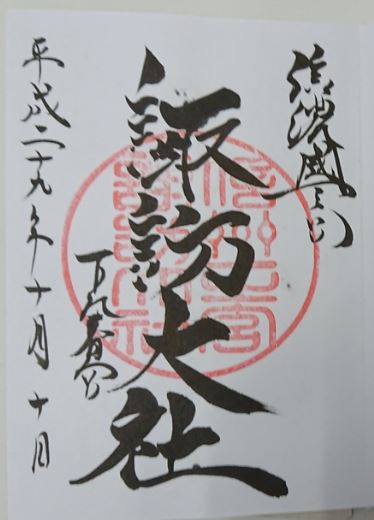 信濃國一之宮
諏訪大社
下社春宮
平成二十九年十月十日